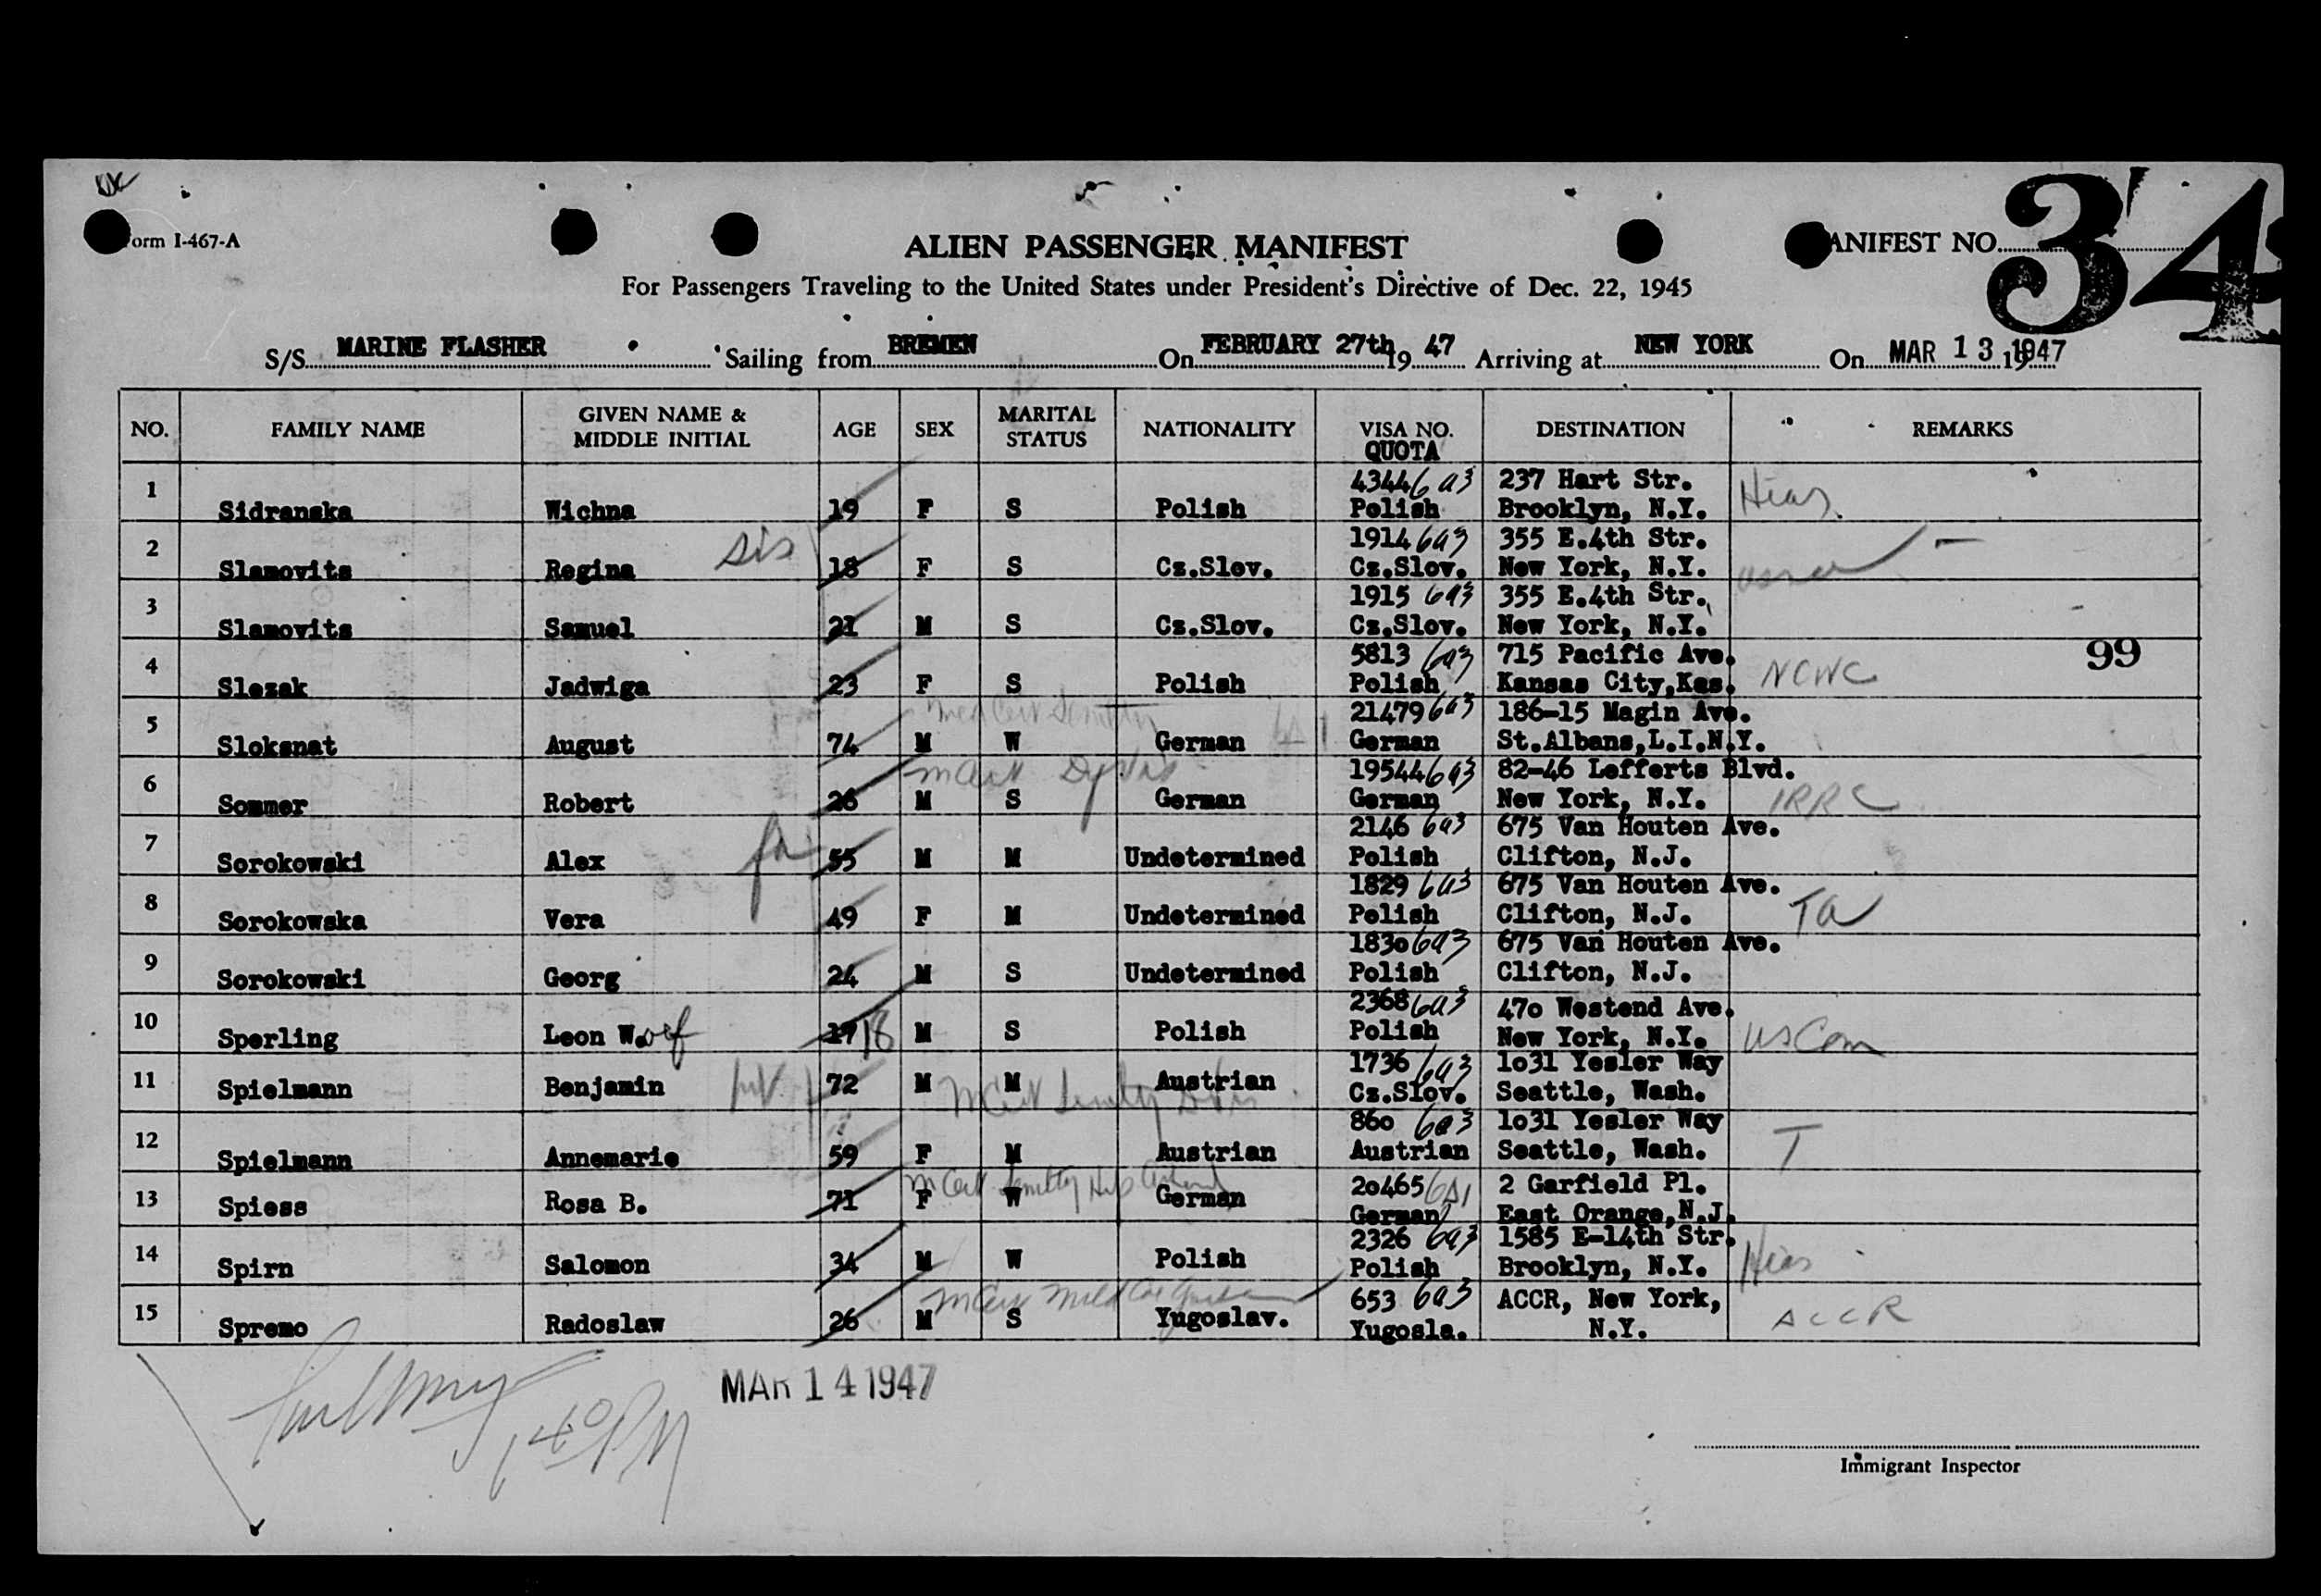 orm I-467-A
ALIEN PASSENGER MANIFEST
ANIFEST NO. 34
For Passengers Traveling to the United States under President's Directive of Dec. 22, 1945
S/S MARINE FLASHER Sailing from BREMEN On FEBRUARY 27th 19 47 Arriving at NEW YORK On MAR 13 1947
NO. FAMILY NAME GIVEN NAME & MIDDLE INITIAL AGE SEX MARITAL STATUS NATIONALITY VISA NO. QUOTA DESTINATION REMARKS
1 Sidranska Wichna 19 F S Polish 4344 6a3 Polish 237 Hart Str. Brooklyn, N.Y. Hias
2 Slamovits Regina sis 18 F S Cz.Slov. 1914 6a3 Cz.Slov. 355 E.4th Str. New York, N.Y.
3 Slamovits Samuel 21 M S Cz.Slov. 1915 6a3 Cz.Slov. 355 E.4th Str. New York, N.Y.
4 Slezak Jadwiga 23 F S Polish 5813 6a3 Polish 715 Pacific Ave. Kansas City,Kas. NCWC 99
5 Sloksnat August 74 M W German 21479 6a3 German 186-15 Magin Ave. St.Albans,L.I.N.Y.
6 Sommer Robert 26 M S German 19544 6a3 German 82-46 Lefferts Blvd. New York, N.Y. IRRC
7 Sorokowski Alex fa 55 M M Undetermined 2146 6a3 Polish 675 Van Houten Ave. Clifton, N.J.
8 Sorokowska Vera 49 F M Undetermined 1829 6a3 Polish 675 Van Houten Ave. Clifton, N.J. Ta
9 Sorokowski Georg 24 M S Undetermined 1830 6a3 Polish 675 Van Houten Ave. Clifton, N.J.
10 Sperling Leon W.olf 17 18 M S Polish 2368 6a3 Polish 470 Westend Ave. New York, N.Y. US Com
11 Spielmann Benjamin 72 M M Austrian 1736 6a3 Cz.Slov. 1031 Yesler Way Seattle, Wash.
12 Spielmann Annemarie 59 F M Austrian 860 6a3 Austrian 1031 Yesler Way Seattle, Wash. T
13 Spiess Rosa B. 71 F W German 20465 6A1 German 2 Garfield Pl. East Orange,N.J.
14 Spirn Salomon 34 M W Polish 2326 6a3 Polish 1585 E-14th Str. Brooklyn, N.Y. Hias
15 Spremo Radoslaw 26 M S Yugoslav. 653 6a3 Yugosla. ACCR, New York, N.Y. ACCR
MAR 14 1947
Immigrant Inspector